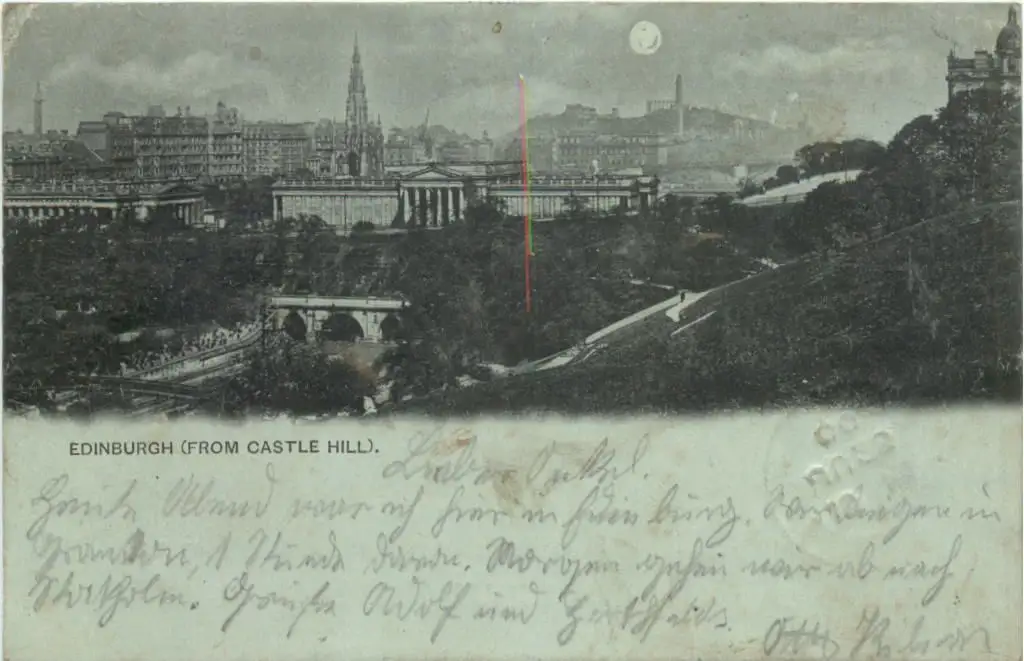 EDINBURGH (FROM CASTLE HILL).
Lieber Onkel.
Heute Abend war ich hier in Edinburg. Wir liegen in
Granton, 1 Stunde davon. Morgen gehen wir ab nach
Stokholm. Grüsse Adolf und
Otto